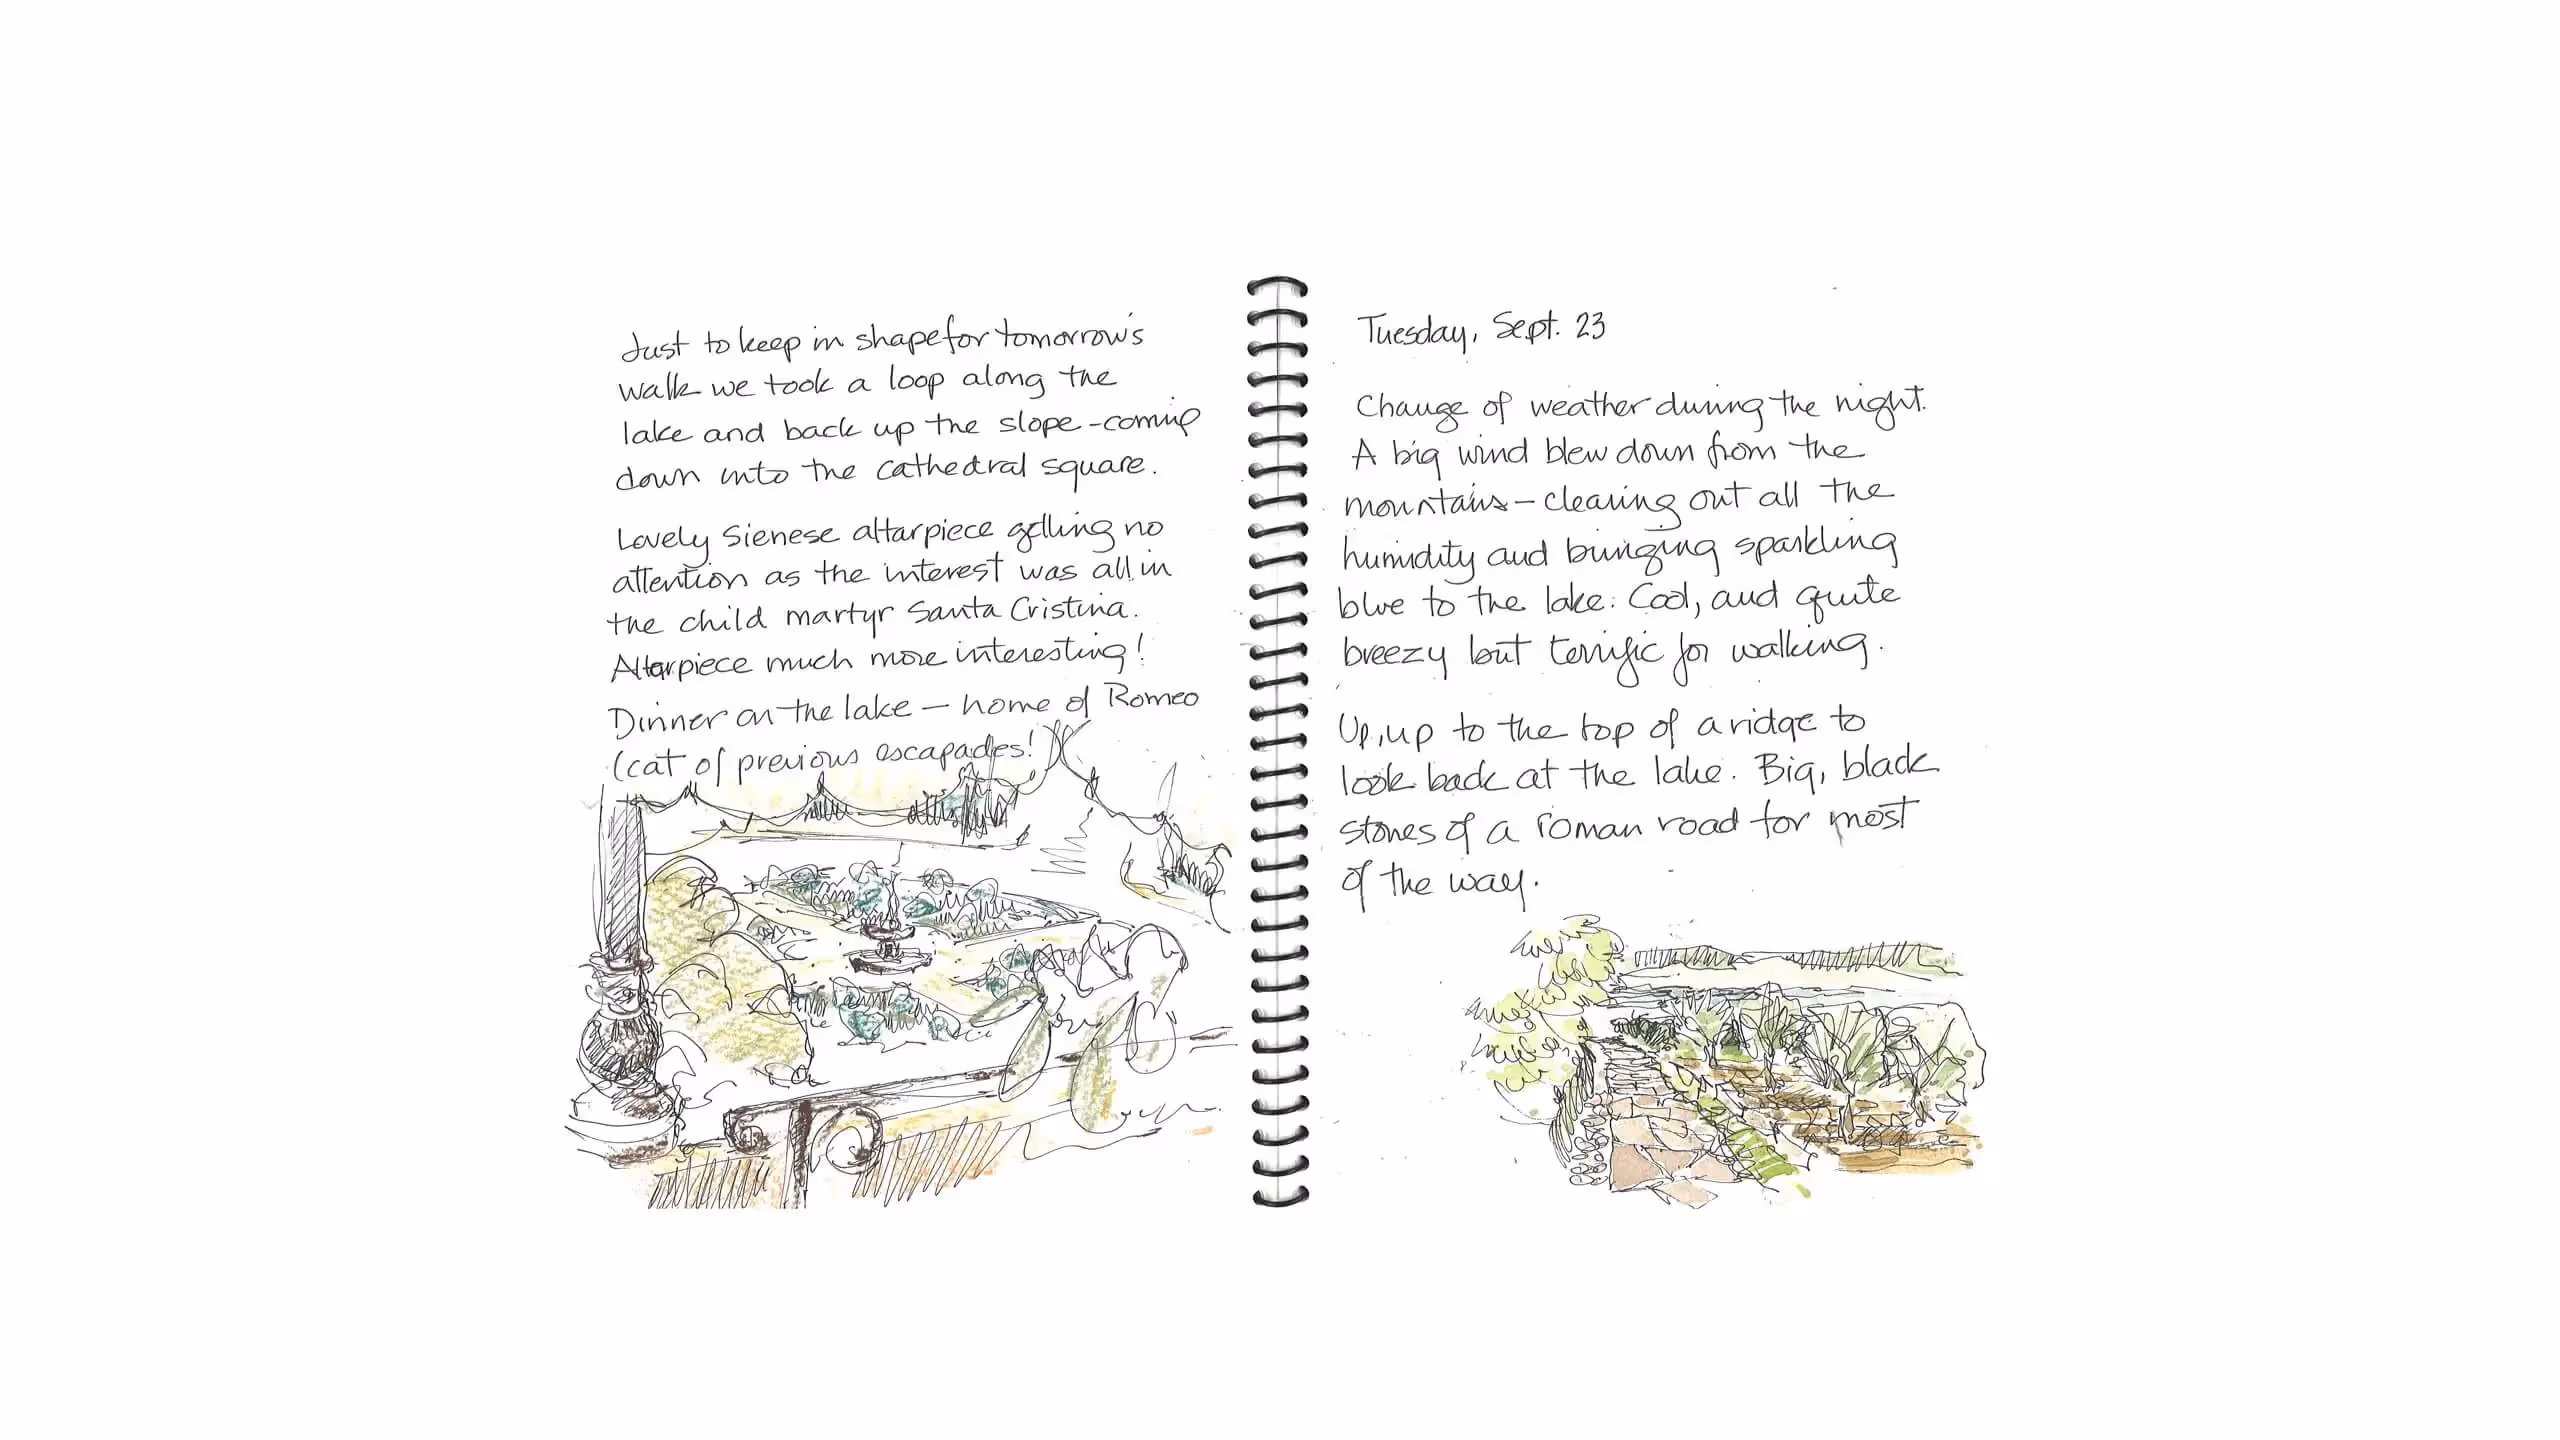 Just to keep in shape for tomorrow's
walk we took a loop along the
lake and back up the slope - coming
down into the cathedral square.
Lovely Sienese altarpiece getting no
attention as the interest was all in
the child martyr Santa Cristina.
Altarpiece much more interesting!
Dinner on the lake — home of Romeo
(cat of previous escapades!)
Tuesday, Sept. 23
Change of weather during the night.
A big wind blew down from the
mountains — clearing out all the
humidity and bringing sparkling
blue to the lake. Cool, and quite
breezy but terrific for walking.
Up, up to the top of a ridge to
look back at the lake. Big, black
stones of a roman road for most
of the way.